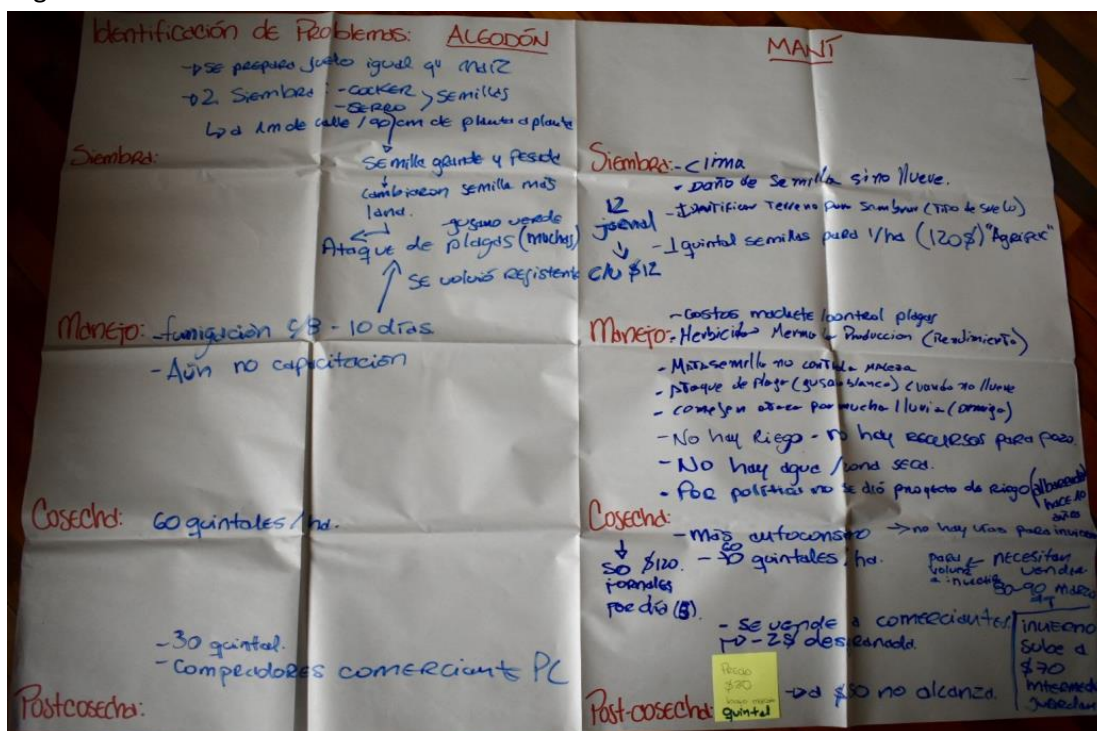 Identificación de Problemas: ALGODÓN
-> se prepara suelo igual q' maíz
-> 2. Siembra: - COCKER > semillas
- SERRO
↳ a 1m de calle / 90/cm de planta a planta
Siembra:
semilla grande y pesada
cambiaron semilla más
lana.
gusano verde
Ataque de plagas (muchas)
se volvió resistente
Manejo: - fumigación c/8 - 10 días
- Aún no capacitación
Cosecha: 60 quintales / ha.
- 30 quintal.
- Compradores comerciante PL
Postcosecha:
MANÍ
Siembra: - clima
- Daño de semilla si no llueve.
- Identificar Terreno para sembrar (Tipo de suelo)
12
jornal
- 1 quintal semillas para 1/ha (120$)
c/u $12
- Costos machete / control plagas
Manejo: - Herbicida -> Merma la Produccion (Rendimiento)
- Matasemilla no controla maleza
- Ataque de plaga (gusano blanco) cuando no llueve
- comejen ataca por mucha lluvia
- No hay Riego - no hay recursos para pozo.
- No hay agua / zona seca.
- Por políticas no se dió proyecto de riego (albarrada
hace 10
años
Cosecha:
- más autoconsumo -> no hay vías para
50 $120.
jornales
por día (5).
60
quintales / ha.
para
volver
a invertir
necesitan
vender
80-90 marzo
- se vende a comerciantes
-> - 2$ desgranada.
invierno
sube a
$70
Post-cosecha:
Precio
$30
quintal
-> a $50 no alcanza.